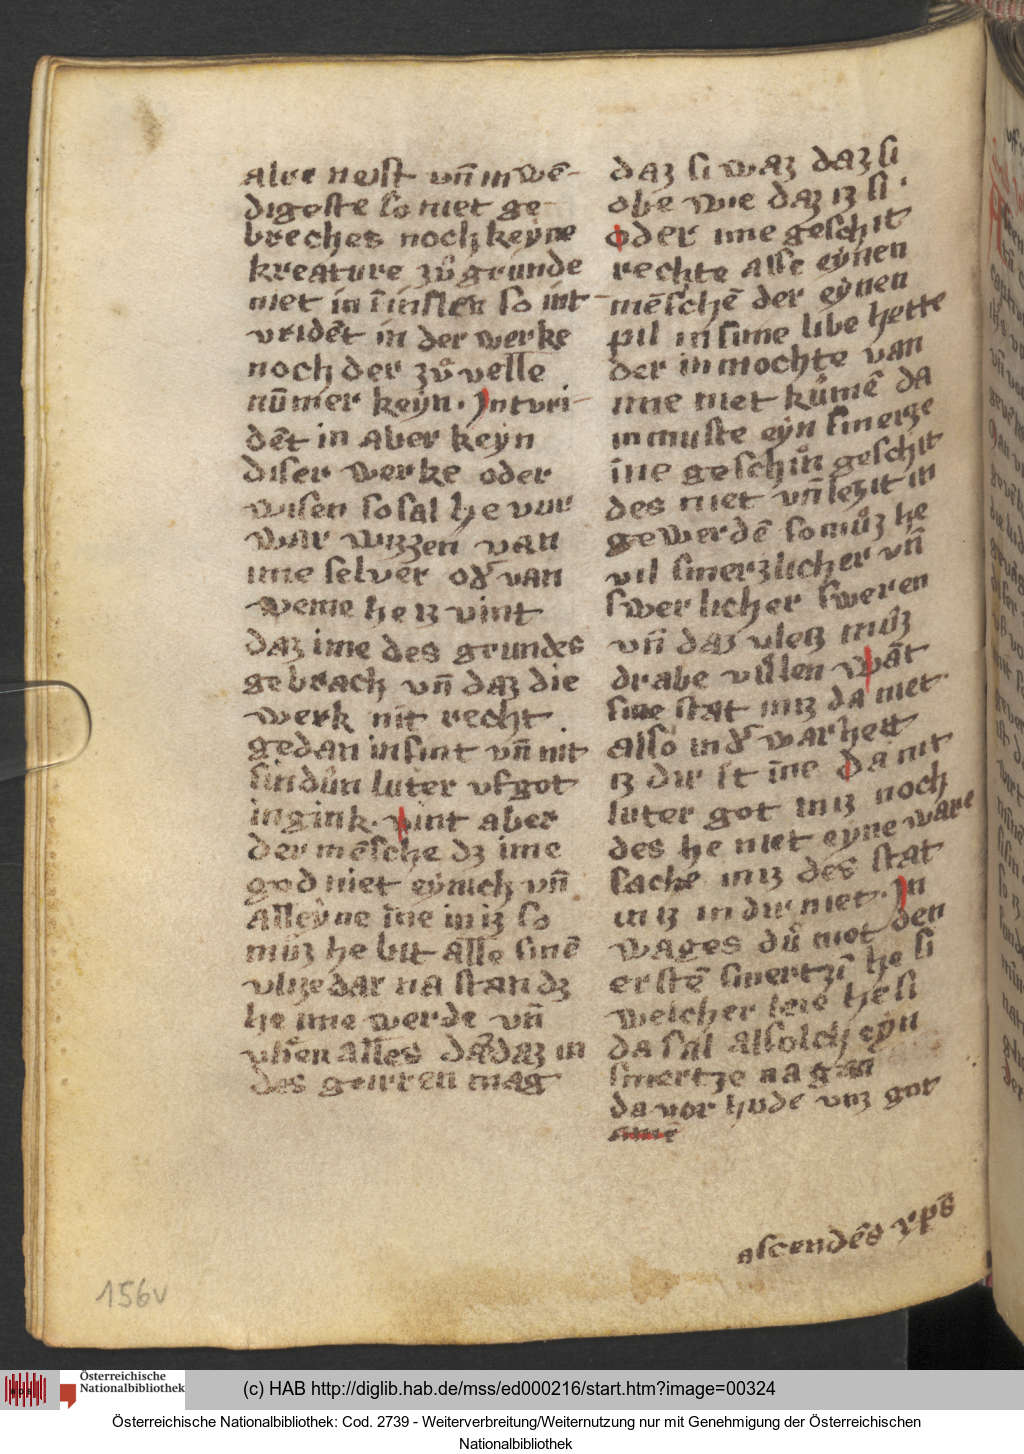 aller neyst vn̄ in wē-
digeste so niet ge-
breches noch keyne
kreature zů grunde
niet in
vridēt in der werke
noch der zů velle
nům̄er keyn. Intvri-
dēt in aber keyn
diser werke oder
wisen so sal he vur
war wizzen van
ime selver od' van
weme he iz vint
daz ime des grundes
gebrach vn̄ daz die
werk nit recht
gedan in sint vn̄ nit
sin důn luter uf got
in gink. vint aber
der mēsche dz ime
god niet eynich vn̄
alleyne īne in iz so
můz he lut alle sinē
vlize dar na stan dz
he ime werde vn̄
alles da daz in
des geirren mag
daz si waz daz si
obe wie daz iz si.
oder ime geschit
rechte alse eynen
mēschē der eynen
pil in sime libe hette
der in mochte van
ime niet kůmē da
in muste eyn smerze
īne geschin geschit
des niet vn̄ lezit in
gewerdē so můz he
vil smerzlicher vn̄
swerlicher sweren
vn̄ daz vleis můz
drabe vůllen wāt
sine stat iniz da niet.
also in d' warheit
iz dir ist īne da nit
luter got in iz noch
des he niet eyne ware
sache in iz des stat
in iz in dir niet. In
wages dů niet den
erstē smertzē he si
welcher leie he si
da sal alsolch eyn
smertze na gan
da vor hude vnz got
amē
ascendēs xp̄s
156v
Österreichische
Nationalbibliothek
(c) HAB http://diglib.hab.de/mss/ed000216/start.htm?image=00324
Österreichische Nationalbibliothek: Cod. 2739 - Weiterverbreitung/Weiternutzung nur mit Genehmigung der Österreichischen
Nationalbibliothek